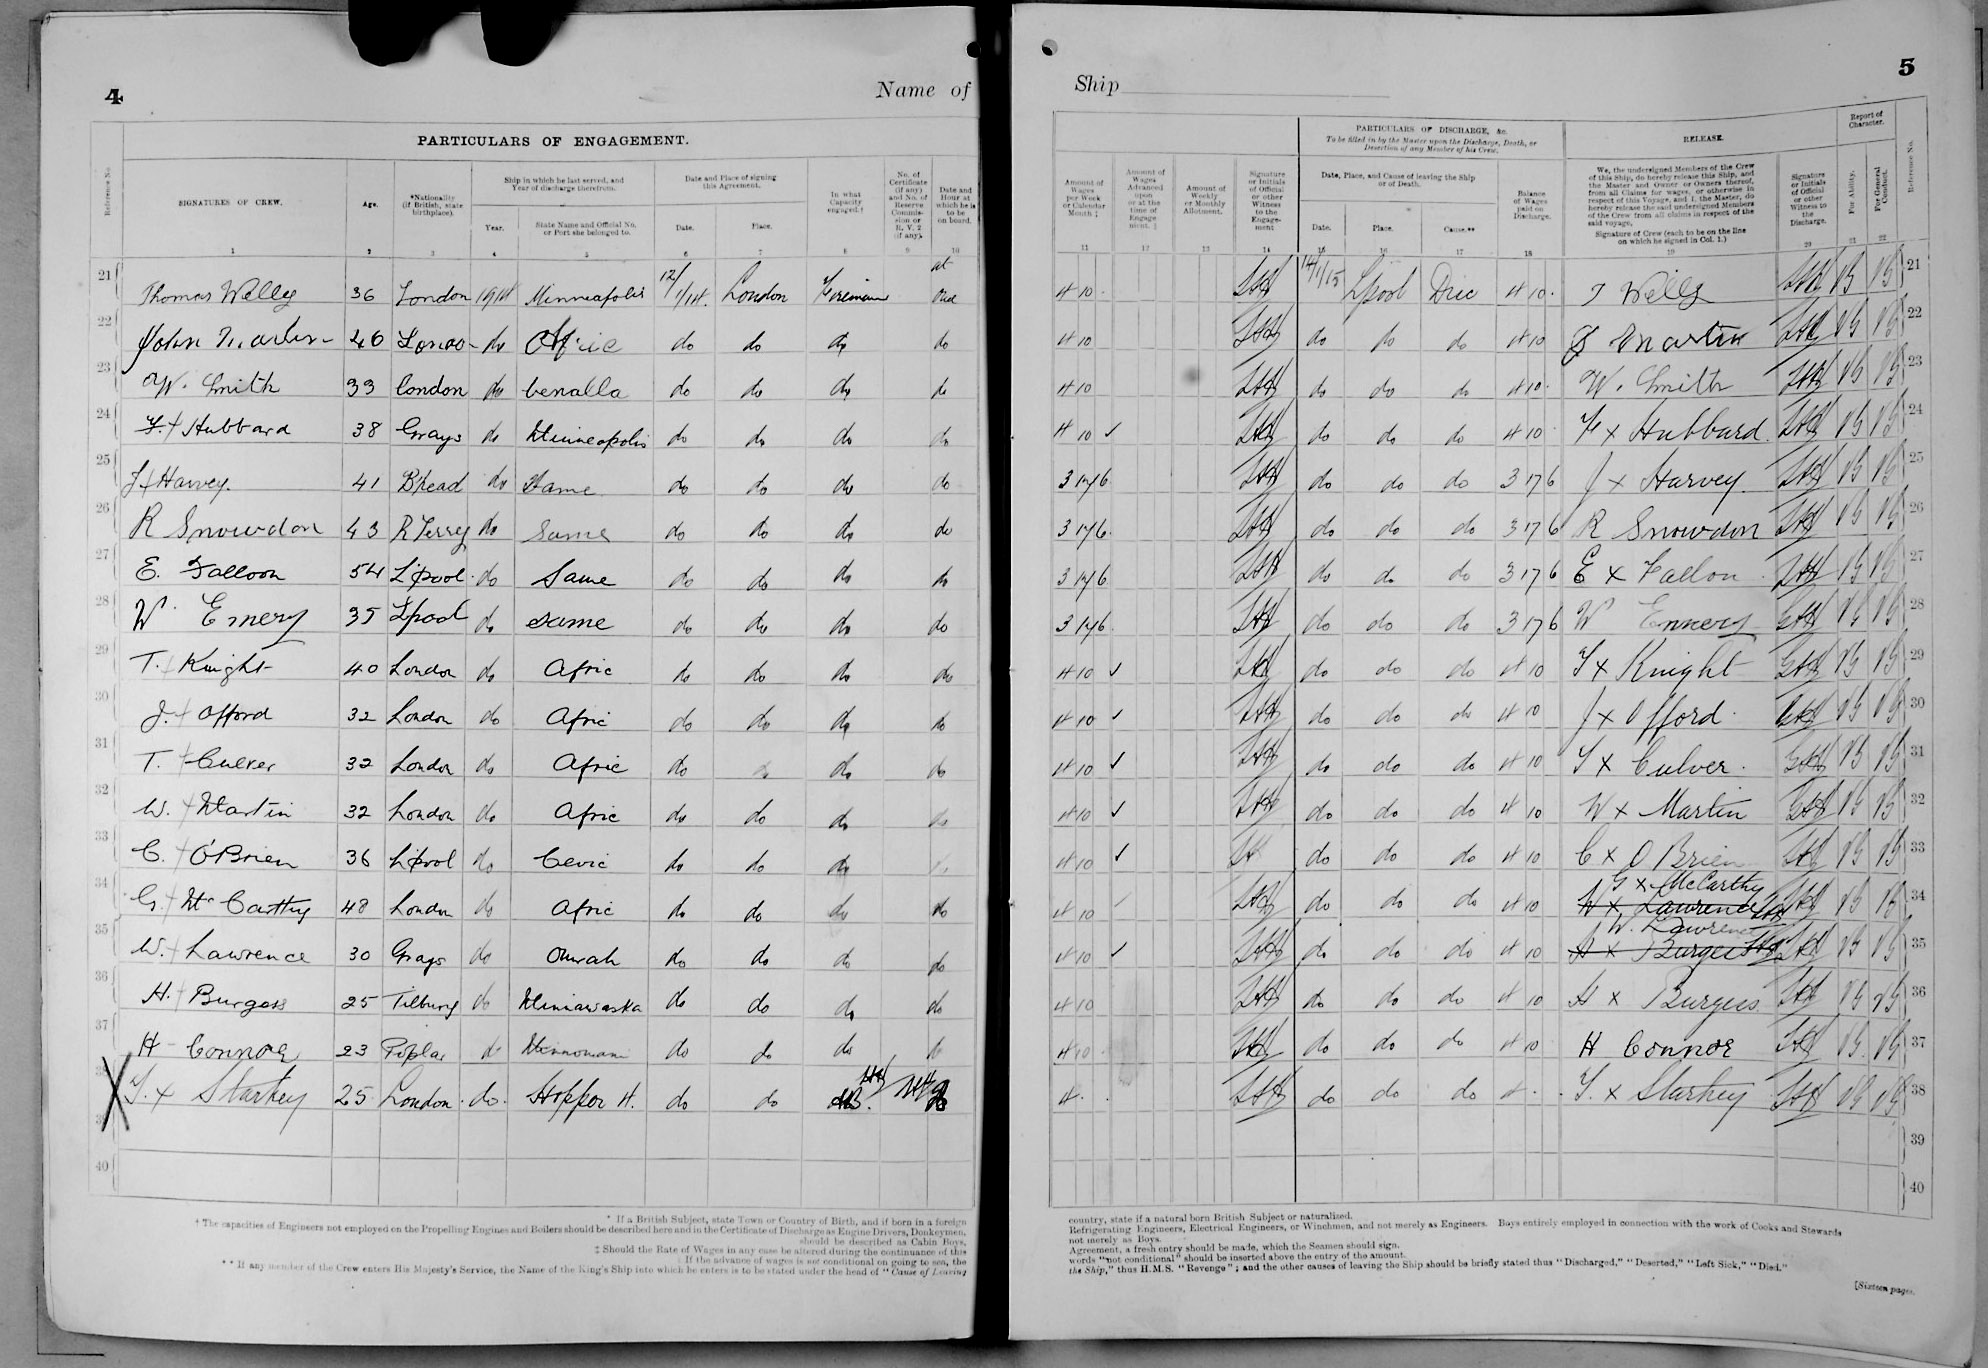 4
Name of
PARTICULARS OF ENGAGEMENT.
Reference No.
SIGNATURES OF CREW.
Age.
*Nationality (if British, state birthplace).
Ship in which he last served, and Year of discharge therefrom.
Year.
State Name and Official No. or Port she belonged to.
Date and Place of signing this Agreement.
Date.
Place.
In what Capacity engaged.†
No. of Certificate (if any) and No. of Reserve Commission or R. V. 2 (if any).
Date and Hour at which he is to be on board.
1 2 3 4 5 6 7 8 9 10
21 Thomas Wells 36 London 1914 Minneapolis 12/1/14. London Foreman at once
22 John Martin 46 London do Afric do do do do
23 W. Smith 33 London do Benalla do do do do
24 F. + Hubbard 38 Grays do Minneapolis do do do do
25 J + Harvey. 41 B'head do Same do do do do
26 R Snowdon 43 R Ferry do Same do do do do
27 E. Falloon 54 L'pool do Same do do do do
28 W. Emery 35 L'pool do same do do do do
29 T. + Knight 40 London do Afric do do do do
30 J. + Offord 32 London do Afric do do do do
31 T. + Culver 32 London do Afric do do do do
32 W. + Martin 32 London do Afric do do do do
33 C. + O'Brien 36 L'pool do Cevic do do do
34 G. + Mc Carthy 48 London do Afric do do do do
35 W. + Lawrence 30 Grays do Omrah do do do do
36 H. + Burgess 25 Tilbury do Minniawaska do do do do
37 H Connor 23 Poplar do do do do do
X T. x Starkey 25 London. do. Hopper H. do do
40
* If a British Subject, state Town or Country of Birth, and if born in a foreign
† The capacities of Engineers not employed on the Propelling Engines and Boilers should be described here and in the Certificate of Discharge as Engine Drivers, Donkeymen,
should be described as Cabin Boys,
‡ Should the Rate of Wages in any case be altered during the continuance of this
If the advance of wages is not conditional on going to sea, the
** If any member of the Crew enters His Majesty's Service, the Name of the King's Ship into which he enters is to be stated under the head of "Cause of Leaving
Ship
5
Amount of Wages per Week or Calendar Month ‡
Amount of Wages Advanced upon or at the time of Engagement. ‡
Amount of Weekly or Monthly Allotment.
Signature or Initials of Official or other Witness to the Engagement
PARTICULARS OF DISCHARGE, &c.
To be filled in by the Master upon the Discharge, Death, or Desertion of any Member of his Crew.
Date, Place, and Cause of leaving the Ship or of Death.
Date.
Place.
Cause.**
Balance of Wages paid on Discharge.
RELEASE.
We, the undersigned Members of the Crew of this Ship, do hereby release this Ship, and the Master and Owner or Owners thereof, from all Claims for wages, or otherwise in respect of this Voyage, and I, the Master, do hereby release the said undersigned Members of the Crew from all claims in respect of the said voyage.
Signature of Crew (each to be on the line on which he signed in Col. 1.)
Signature or Initials of Official or other Witness to the Discharge.
Report of Character.
For Ability.
For General Conduct.
Reference No.
11 12 13 14 15 16 17 18 19 20 21 22
4 10 14/1/15 L'pool Disc 4 10 T Wells VG VG 21
4 10 do do do 4 10 J Martin VG VG 22
4 10 do do do 4 10 W. Smith VG VG 23
4 10 ✓ do do do 4 10 F x Hubbard VG VG 24
3 17 6 do do do 3 17 6 J x Harvey. VG VG 25
3 17 6 do do do 3 17 6 R Snowdon VG VG 26
3 17 6 do do do 3 17 6 E x Fallon VG VG 27
3 17 6 do do do 3 17 6 W Emery VG VG 28
4 10 ✓ do do do 4 10 T x Knight VG VG 29
4 10 ✓ do do do 4 10 J x Offord VG VG 30
4 10 ✓ do do do 4 10 T x Culver VG VG 31
4 10 ✓ do do do 4 10 W x Martin VG VG 32
4 10 ✓ do do do 4 10 C x O Brien VG VG 33
G x McCarthy
4 10 do do do 4 10 W x Lawrence VG VG 34
W. Lawrence
4 10 ✓ do do do 4 10 H x Burgess VG VG 35
4 10 do do do 4 10 H x Burgess VG VG 36
4 10 do do do 4 10 H Connor VG VG 37
4 do do do 4 T. x Starkey VG VG 38
39
40
country, state if a natural born British Subject or naturalised.
Refrigerating Engineers, Electrical Engineers, or Winchmen, and not merely as Engineers. Boys entirely employed in connection with the work of Cooks and Stewards
not merely as Boys.
Agreement, a fresh entry should be made, which the Seamen should sign.
words "not conditional" should be inserted above the entry of the amount.
the Ship," thus H.M.S. "Revenge"; and the other causes of leaving the Ship should be briefly stated thus "Discharged," "Deserted," "Left Sick," "Died."
[Sixteen pages.